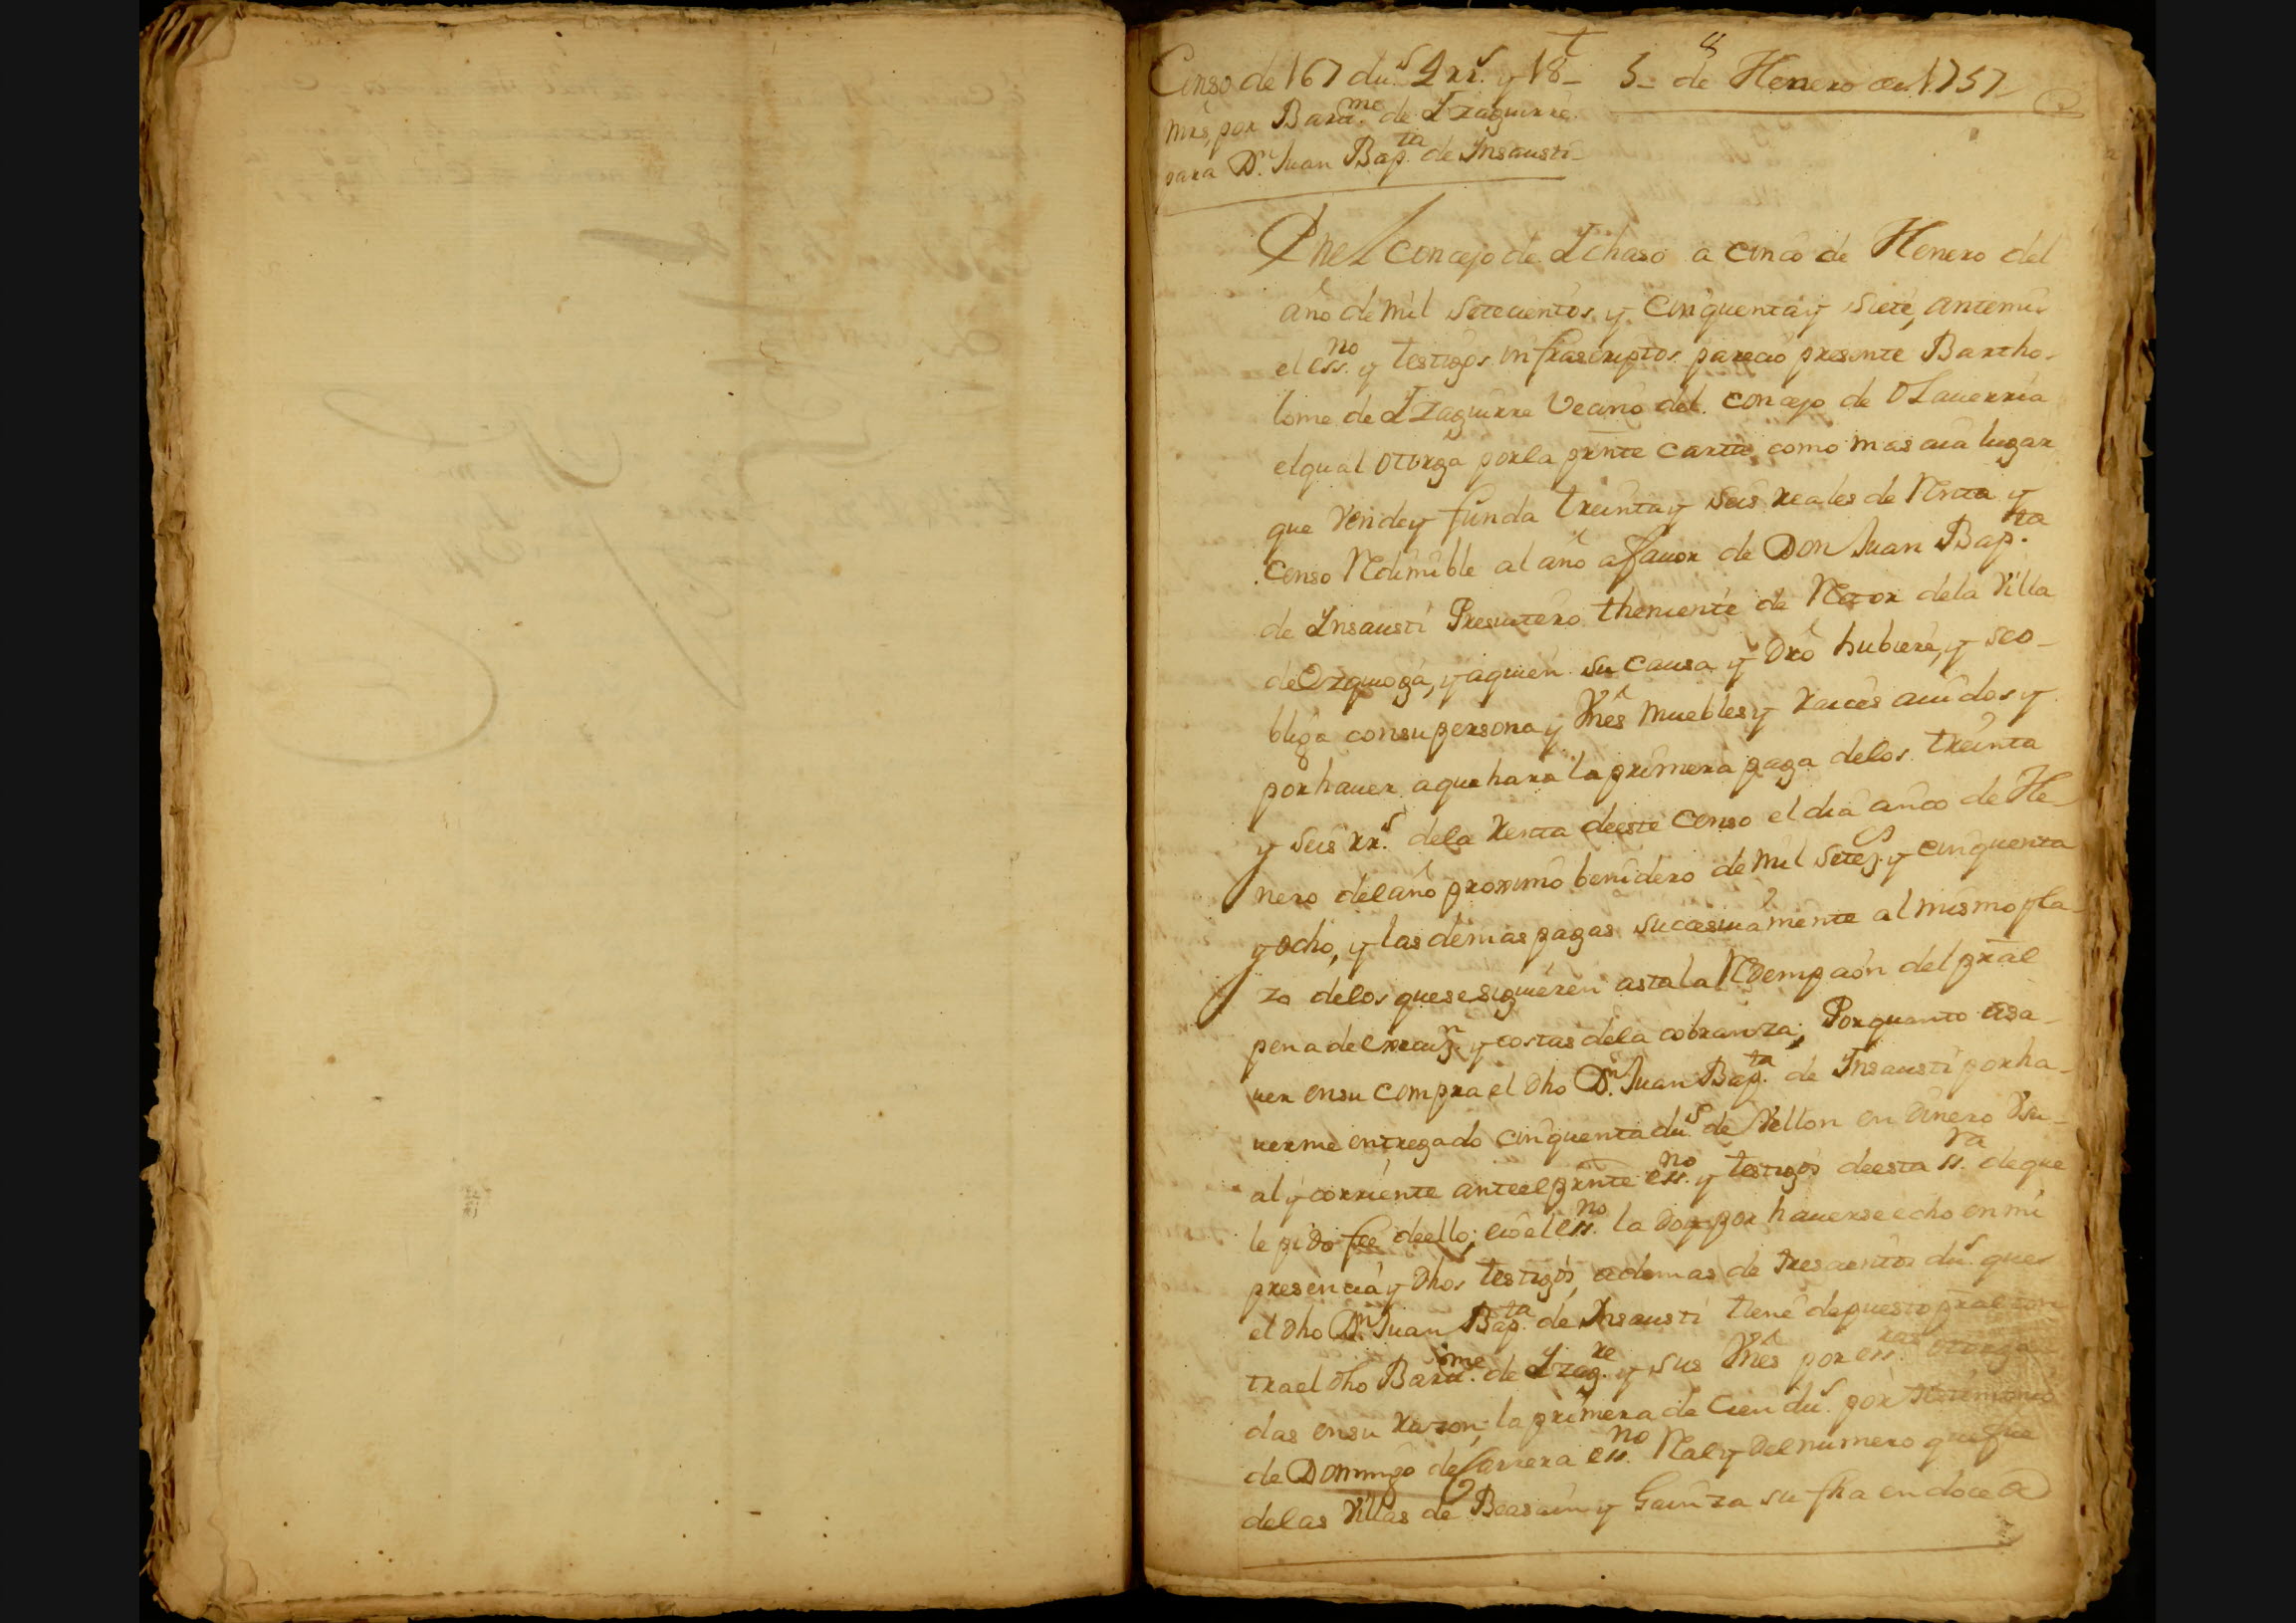 Censo de 167 du.s 2 rr.s y 18 5 de Henero de 1757
mrs, por Barme. de Yzaguirre
para Dn. Juan Bap.ta de Insausti
Enel concejo de Ychaso a cinco de Henero del
año de mil setecientos y cinquenta y siete, antemi
el essno. y testigos infrascriptos parecio presente Bartho-
lome de Yzaguirre Vecino del concejo de Olauerria
elqual otorga porla prnte carta como mas aia lugar
que Vende y funda treinta y seis reales de Renta y
censo Redimible al año a fauor de Don Juan Bap.ta
de Ynsausti Presuitero theniente de Rector dela Villa
de Ezquioga, y aquien su causa y dro hubiere, y seo-
bliga consu persona y Vnes muebles y raices auidos y
por hauer aque hara la primera paga delos treinta
y seis rr.s dela renta deeste censo el dia cinco de He-
nero delaño proximo benidero de mil setez.s y cinquenta
y ocho, y las demas pagas succesiuamente al mismo pla-
zo delos quese siguieren asta la Redempcion del pral
pena de execuz.n y costas dela cobranza; Porquanto
uer ensu compra el dho Dn. Juan Bap.ta de Insausti por ha-
uerme entregado cinquenta du.s de Vellon en dinero Vsu-
al y corriente anteel prnte essno. y testigos deesta ss.ra deque
le pido fee deello; eio el essno. la doy por hauerse echo en mi
presencia y dhos testigos, ademas de trescientos du.s que
el dho Dn. Juan Bap.ta de Insausti tiene depuesto pral con
tra el dho Barme. de Yzag.re y sus Vnes por ess.ras otorga
das ensu razon; la primera de Cien du.s por testimonio
de Domingo de Larrera essno. Real y del numero que fue
delas Villas de Beasain y Gainza su fha en doce de